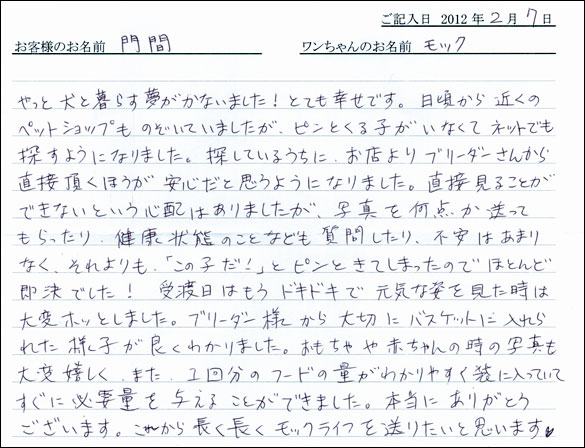 ご記入日 2012年2月7日
お客様のお名前 門間 ワンちゃんのお名前 モック
やっと犬と暮らす夢がかないました！とても幸せです。日頃から近くの
ペットショップものぞいていましたが、ピンとくる子がいなくてネットでも
探すようになりました。探しているうちに、お店よりブリーダーさんから
直接頂くほうが安心だと思うようになりました。直接見ることが
できないという心配はありましたが、写真を何点か送って
もらったり、健康状態のことなども質問したり、不安はあまり
なく、それよりも、「この子だ！」とピンときてしまったのでほとんど
即決でした！ 受渡日はもうドキドキで元気な姿を見た時は
大変ホッとしました。ブリーダー様から大切にバスケットに入れら
れた様子が良くわかりました。おもちゃや赤ちゃんの時の写真も
大変嬉しく、また、1回分のフードの量がわかりやすく袋に入っていて
すぐに必要量を与えることができました。本当にありがとう
ございます。これから長く長くモックライフを送りたいと思います♥